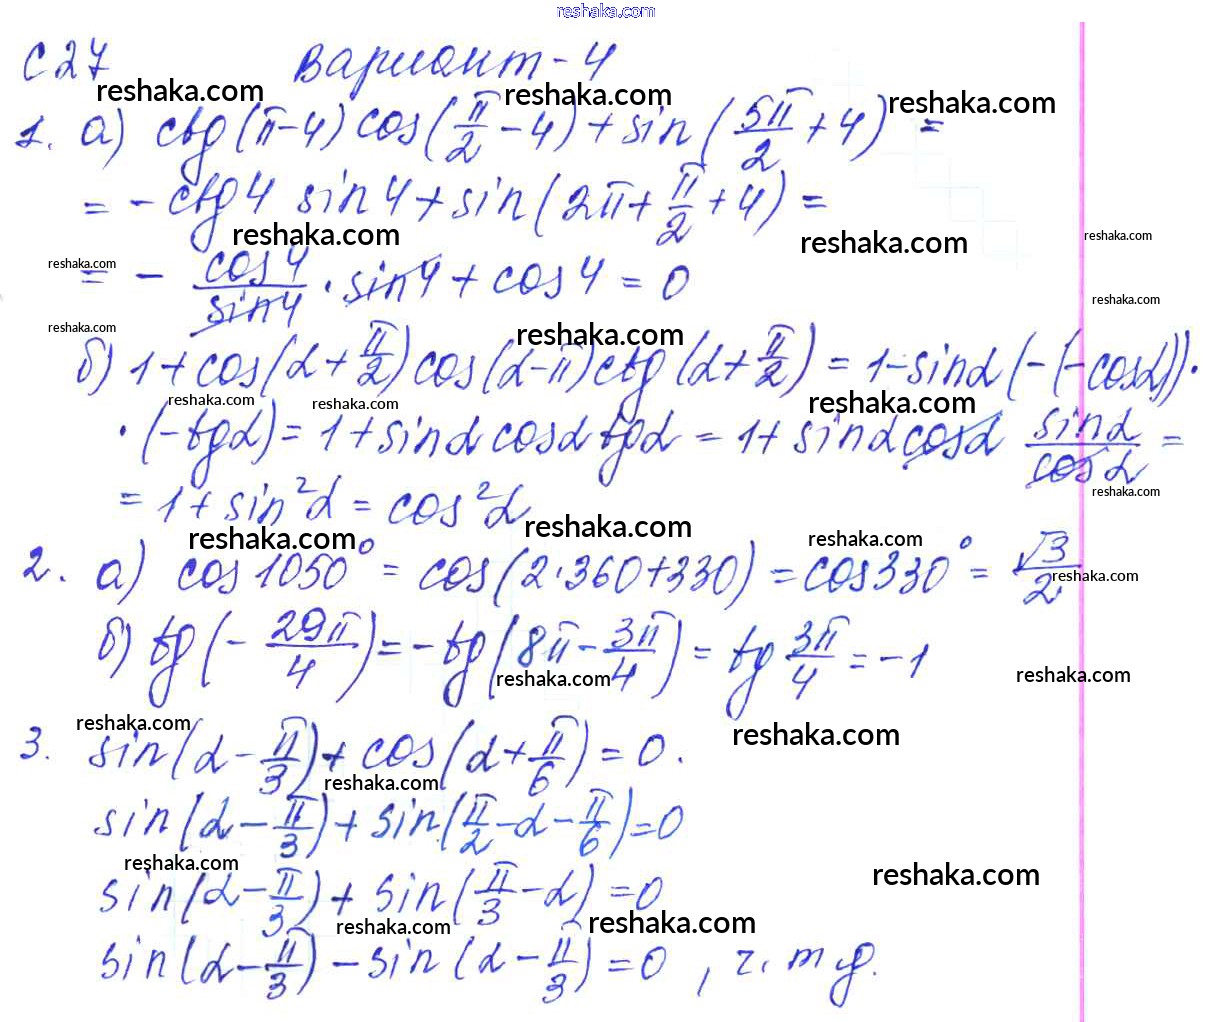 reshaka.com
С 27 Вариант-4
reshaka.com reshaka.com reshaka.com
1. а) ctg(π-4) cos(π/2 - 4) + sin(5π/2 + 4) =
= - ctg4 sin4 + sin(2π + π/2 + 4) =
reshaka.com reshaka.com reshaka.com
reshaka.com
= - cos4/sin4 · sin4 + cos4 = 0
reshaka.com
reshaka.com reshaka.com
б) 1 + cos(α + π/2) cos(α-π) ctg(α + π/2) = 1 - sinα (-(-cosα)) ·
reshaka.com reshaka.com reshaka.com
· (-tgα) = 1 + sinα cosα tgα = 1 + sinα cosα sinα/cosα =
reshaka.com
= 1 + sin²α = cos²α
reshaka.com reshaka.com reshaka.com
2. а) cos1050° = cos(2·360+330) = cos330° = √3/2
reshaka.com
б) tg(- 29π/4) = - tg(8π - 3π/4) = tg 3π/4 = -1
reshaka.com reshaka.com
reshaka.com reshaka.com
3. sin(α - π/3) + cos(α + π/6) = 0.
reshaka.com
sin(α - π/3) + sin(π/2 - α - π/6) = 0
reshaka.com reshaka.com
sin(α - π/3) + sin(π/3 - α) = 0
reshaka.com reshaka.com
sin(α - π/3) - sin(α - π/3) = 0, ч. т д.